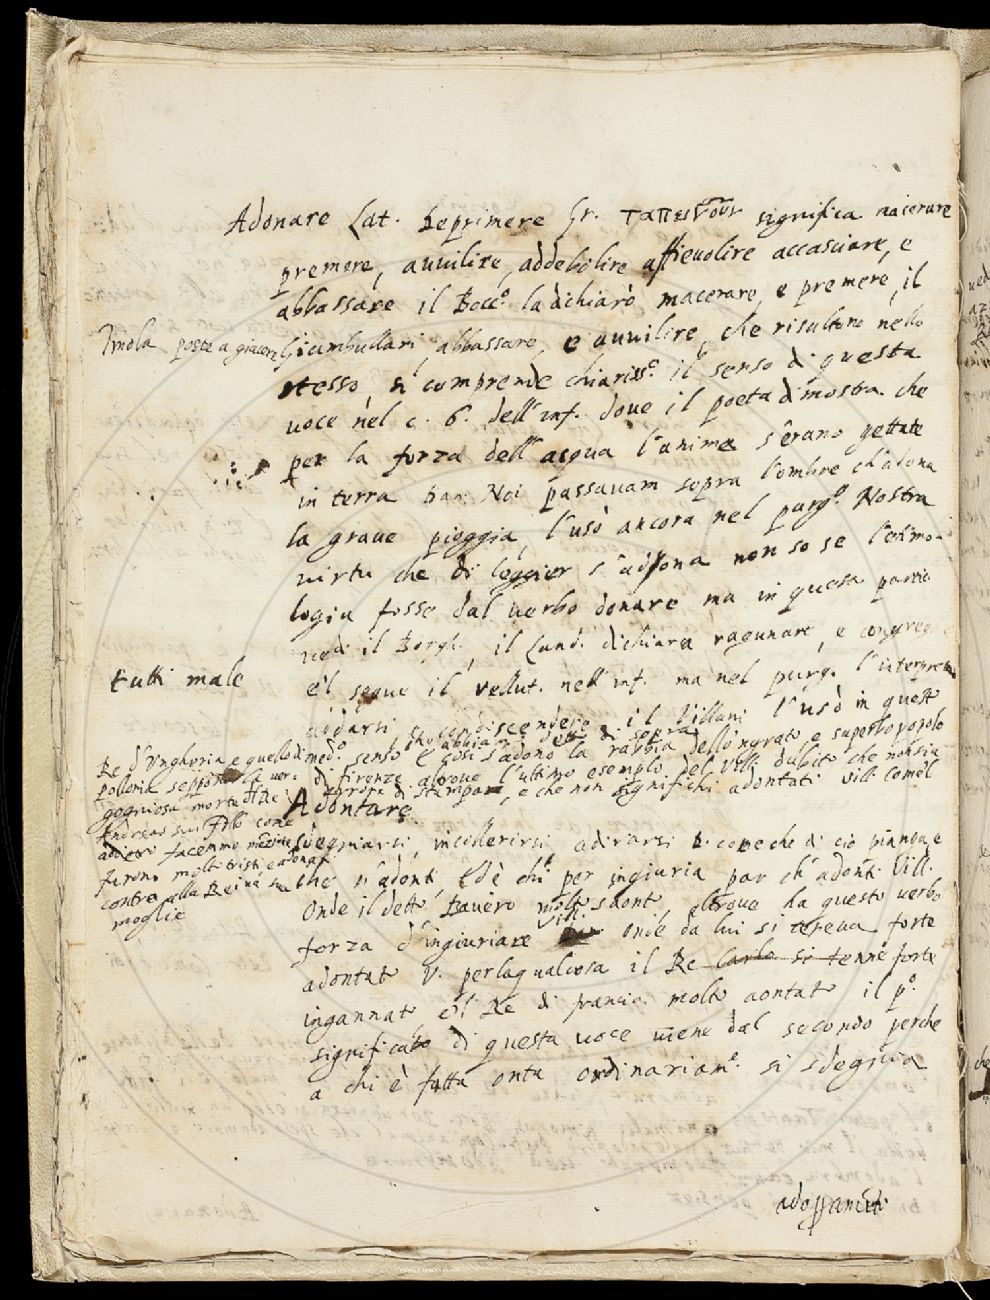 Adonare Lat. Deprimere Gr. ταπεινοῦν significa macerare
premere, auuilire, addebolire affieuolire accasciare, e
abbassare il Bocc.º la dichiarò macerare, e premere, il
Imola poste a giacere Giambullari abbassare, e auuilire, che risultono nello
stesso, si comprende chiariss.º il senso di questa
uoce nel c. 6. dell'inf. doue il poeta dimostra che
per la forza dell'acqua l'anime s'erano gettate
in terra Dan. Noi passauam sopra l'ombre ch'adona
la graue pioggia, l'usò ancora nel purg.º Nostra
uirtu che di leggier s'adona non so se l'etimo-
logia fosse dal uerbo donare ma in questa partic
uedi il Borgh. il Land. dichiara ragunare, e congregare
tutti male
e'l segue il Vellut. nell'inf. ma nel purg. l'interpreta
aidarsi, e condiscendere il Villani l'usò in questo
che abbiam detto di sopra
med.º senso e così s'adonò la rabbia dello'ngrato, e superbo popolo
di firenze altroue l'ultimo esemplo del Vill. dubito che non sia
errore di stampa, e che non significhi adontati Vill. come'l
Re d'Vngheria, e quello di
pollonia seppono la uer-
gogniosa morte del Re
Andreas suo come
adietro facemmo menzione
furono molto tristi, e adonati
contro alla Reina sua
moglie
Adontare
sdegniarsi, incollerirsi adirarsi D. come che di ciò pianga, e
che s'adonti Ed è chi per ingiuria par ch'adonti Vill.
Onde il detto Bauero molto s'adontò altroue ha questo uerbo
forza d'ingiuriare Vill. onde da lui si teneua forte
adontato V. perlaqualcosa il Re Carlo si tenne forte
ingannato e'l Re di francia molto aontato il p.º
significato di questa uoce uiene dal secondo perche
a chi è fatta onta ordinariam.e si sdegnia
adossamento